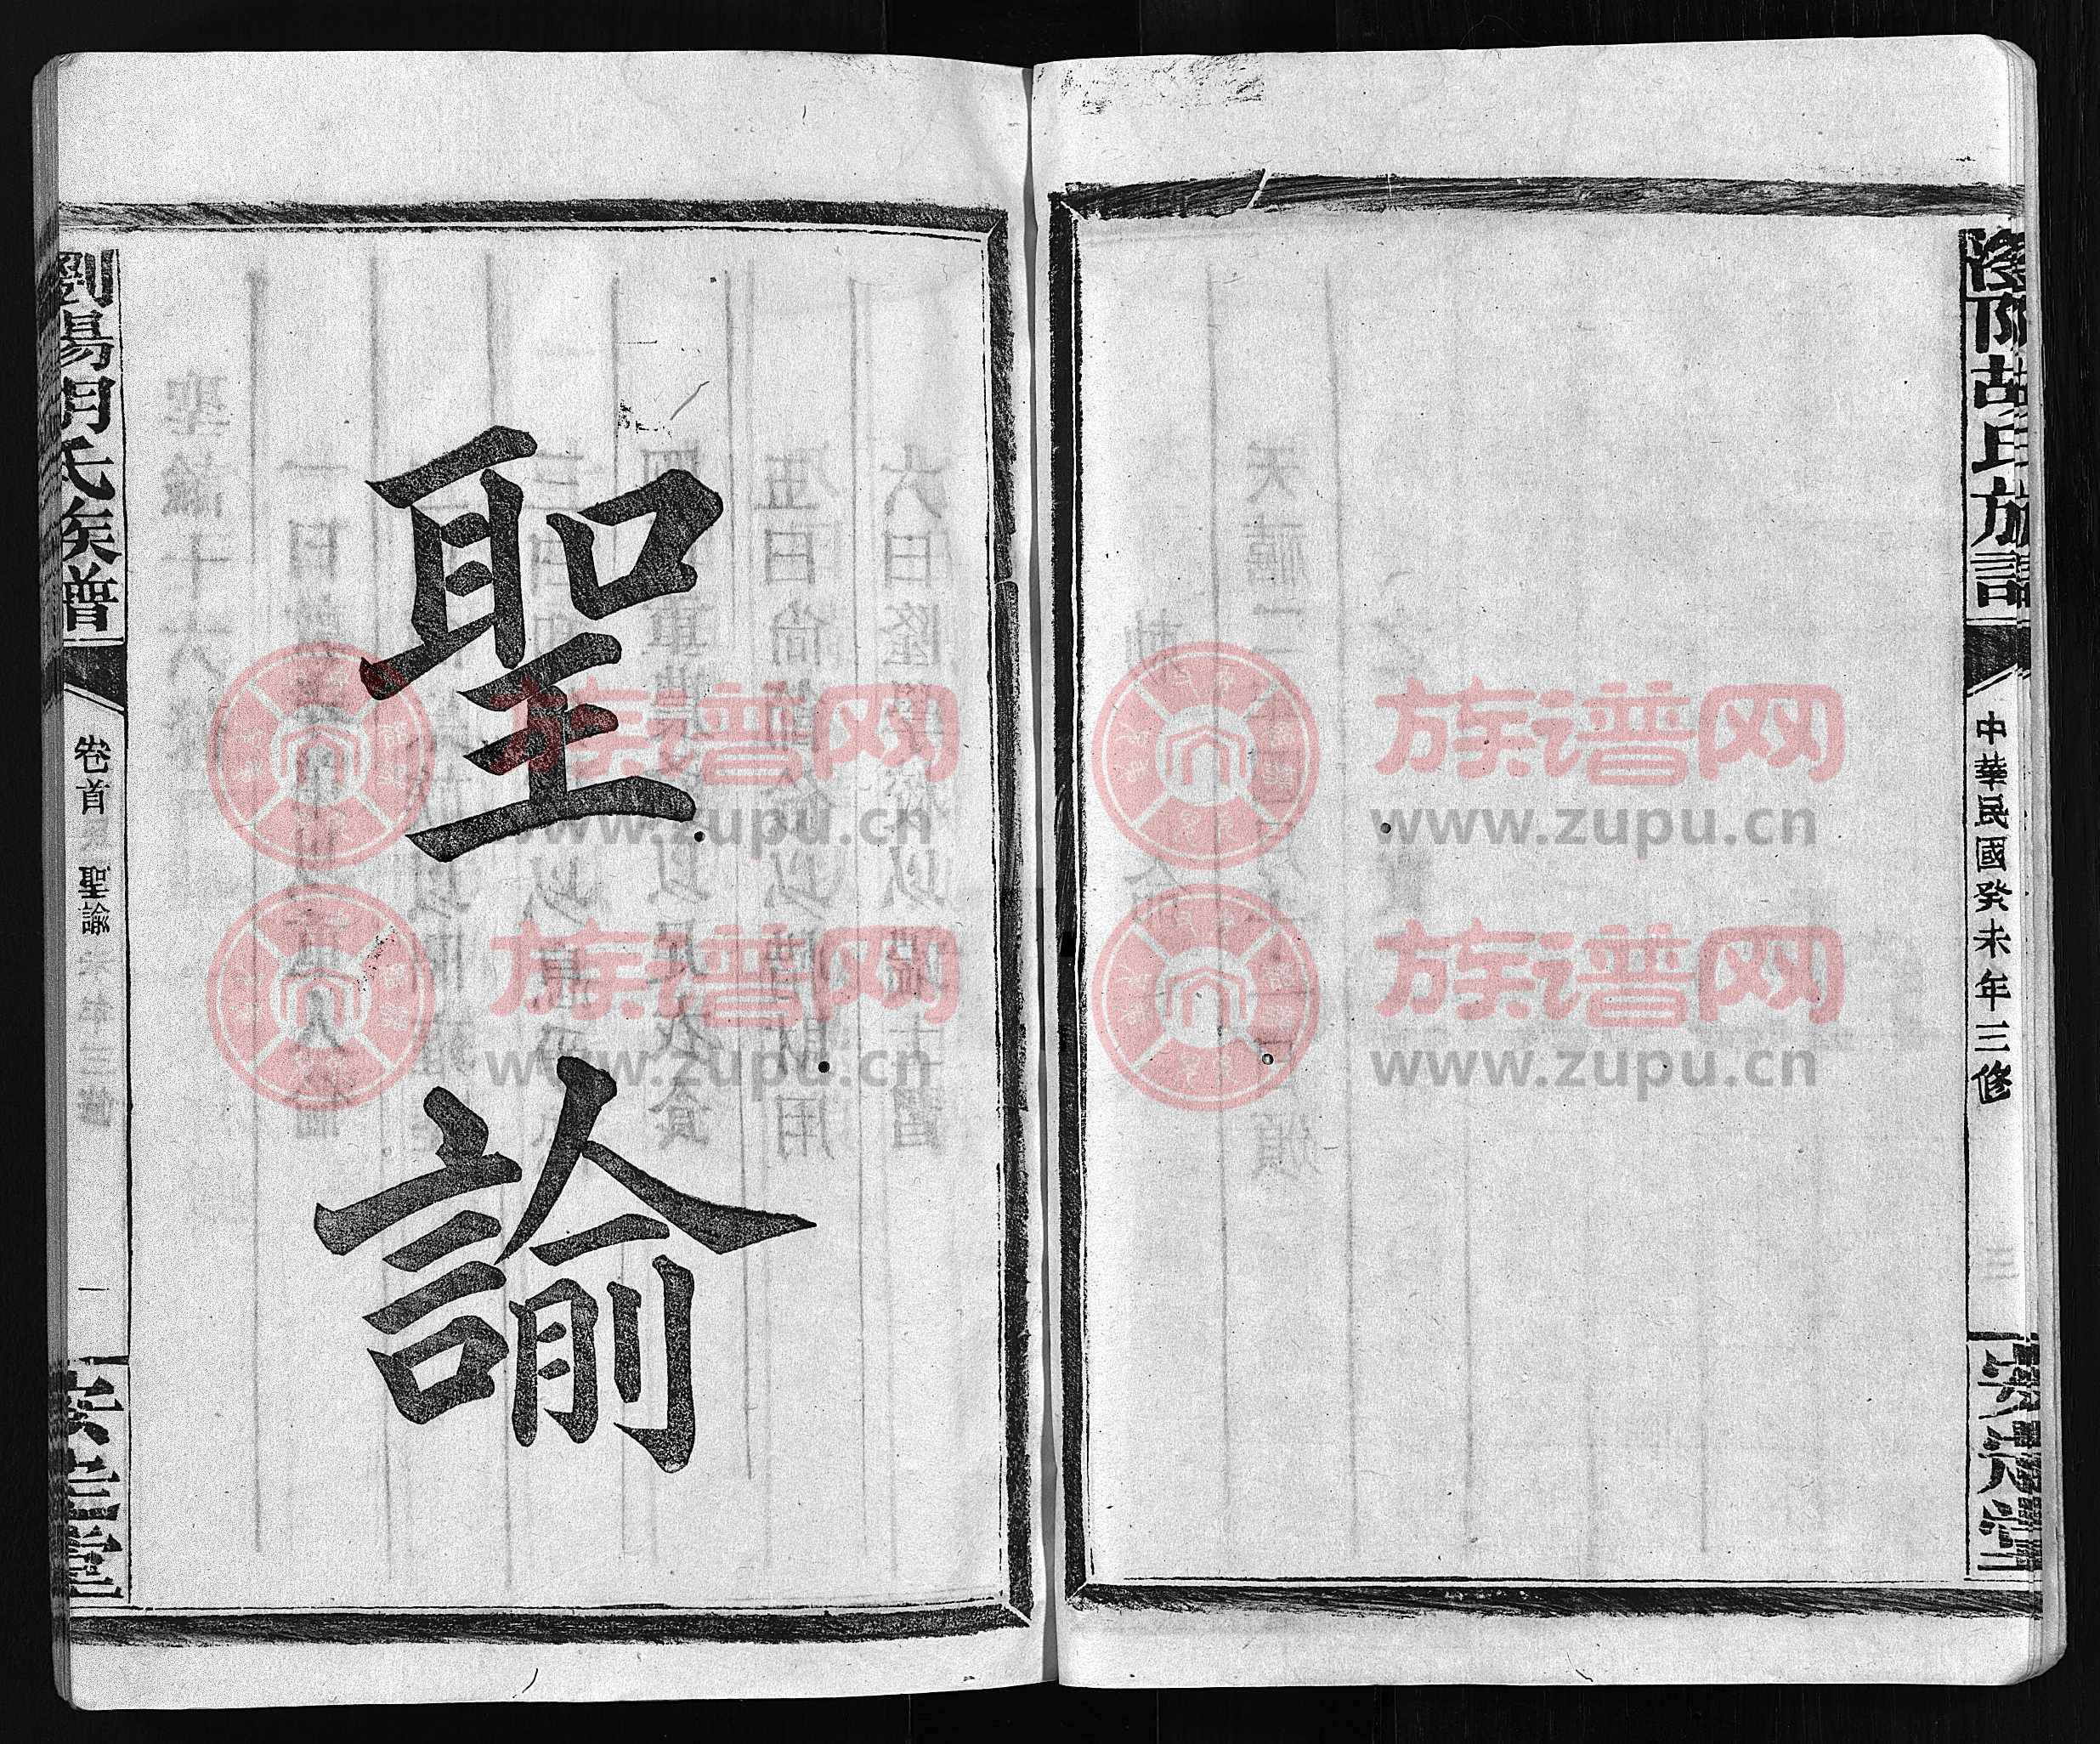 胡氏族譜
中華民國癸未年三修
安定堂
聖諭
劉陽胡氏族譜
卷首
聖諭
一
安定堂
族谱网
www.zupu.cn
族谱网
www.zupu.cn
族谱网
www.zupu.cn
族谱网
www.zupu.cn